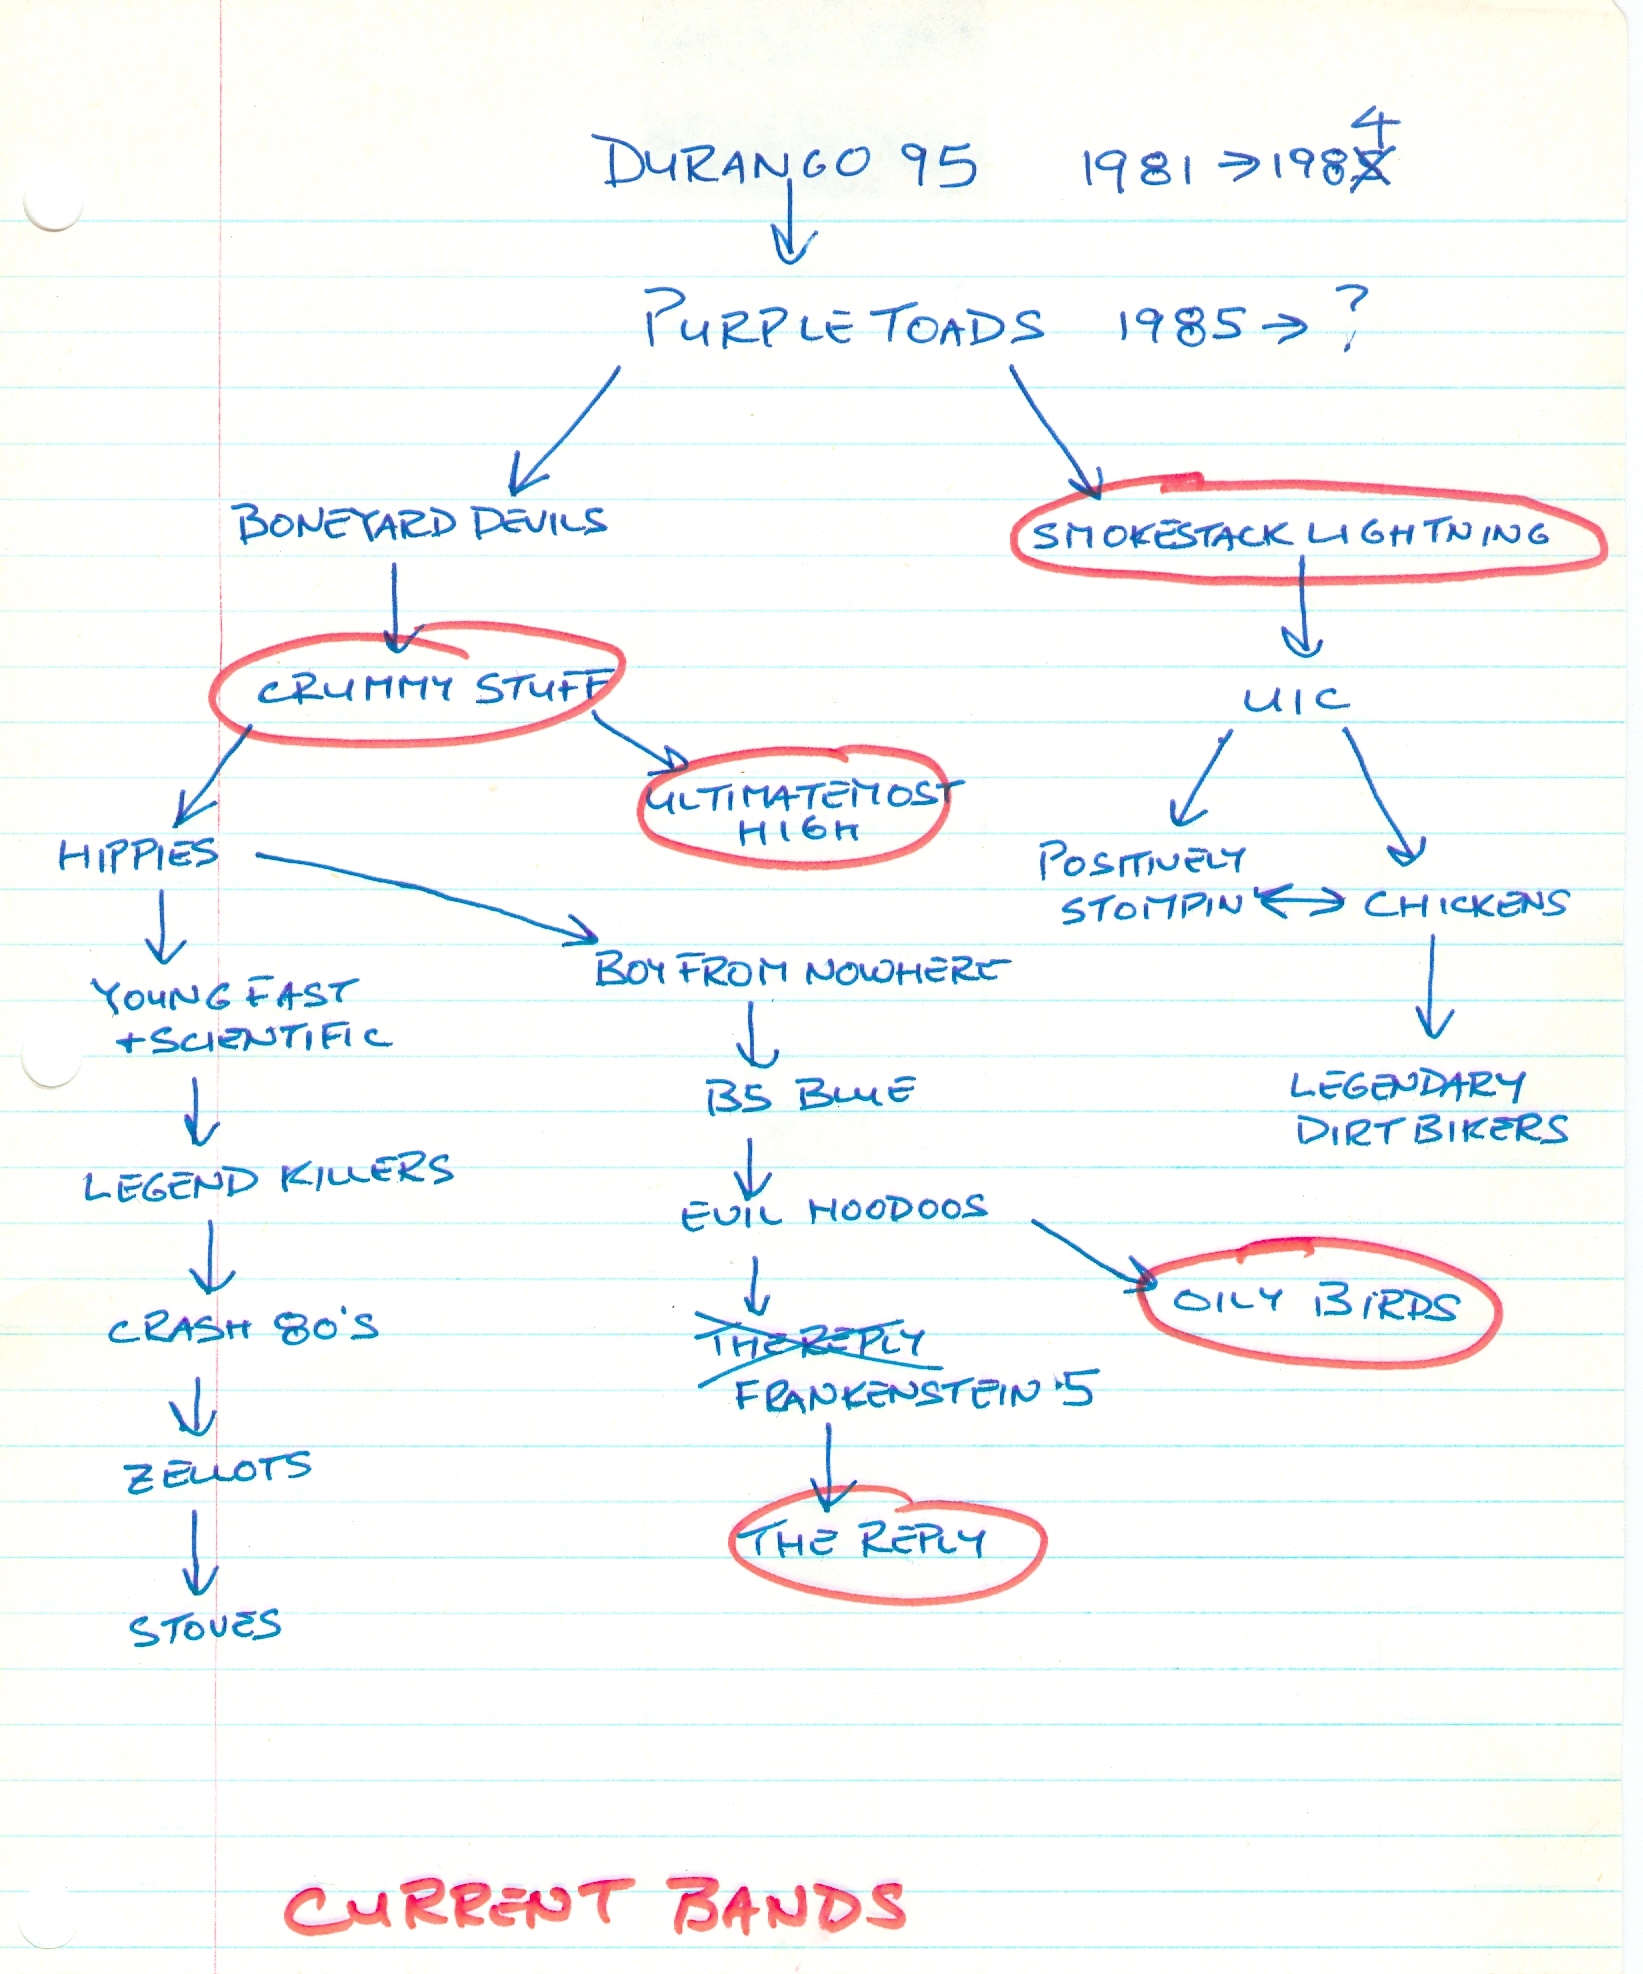 DURANGO 95 1981 → 1984
PURPLE TOADS 1985 → ?
BONEYARD DEVILS
SMOKESTACK LIGHTNING
CRUMMY STUFF
UIC
ULTIMATEMOST
HIGH
HIPPIES
POSITIVELY
STOMPIN ↔ CHICKENS
BOY FROM NOWHERE
YOUNG FAST
+ SCIENTIFIC
BS BLUE
LEGENDARY
DIRT BIKERS
LEGEND KILLERS
EVIL HOODOOS
OILY BIRDS
CRASH 80'S
THE REPLY
FRANKENSTEIN '5
ZELLOTS
THE REPLY
STOVES
CURRENT BANDS